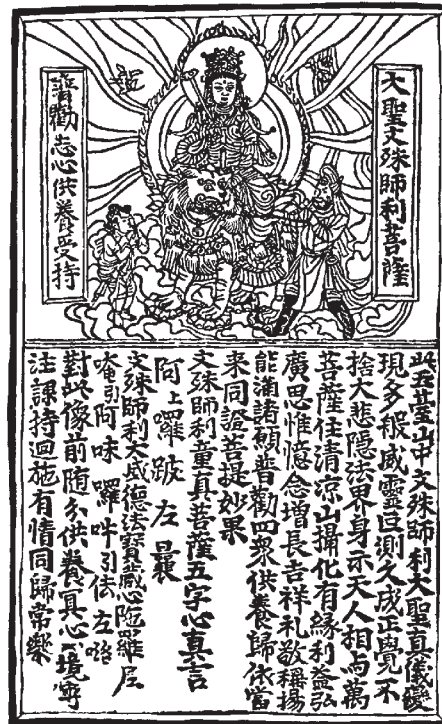 大聖文殊師利菩薩
普勸志心供養受持
此五臺山中文殊師利大聖真儀變
現多般威靈叵測久成正覺不
捨大悲隱法界身示天人相與萬
菩薩住清涼山攝化有緣利益弘
廣思惟憶念增長吉祥礼敬稱揚
能滿諸願普勸四衆供養歸依當
来同證菩提妙果
文殊師利童真菩薩五字心真言
阿上囉跛左曩
文殊師利大威德法寶藏心陁羅尼
唵引阿味囉吽引佉左洛
對此像前随分供養冥心一境專
注課持迴施有情同歸常樂